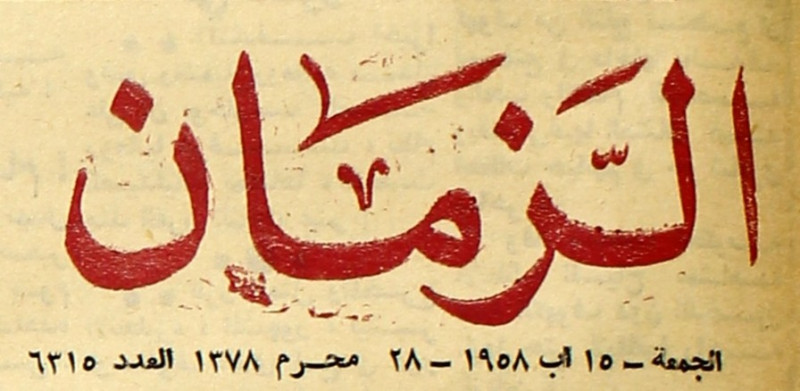 الزمان
الجمعة ـ ١٥ آب ١٩٥٨ ـ ٢٨ محرم ١٣٧٨ العدد ٦٣١٥